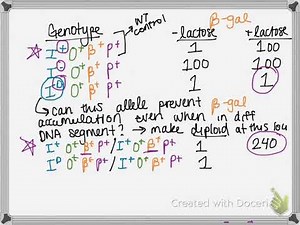 Genotype WT control β-gal
- lactose + lactose
☆ I⁺ O⁺ β⁺ P⁺ 1 100
I⁻ O⁺ β⁺ P⁺ 100 100
Iᴰ O⁺ β⁺ P⁺ 1 1
↳ can this allele prevent β-gal
accumulation even when in diff
DNA segment? → make diploid at this lou
☆ I⁺ O⁺ β⁺ P⁺ / I⁺ O⁺ β⁺ P⁺ 1 240
Iᴰ O⁺ β⁺ P⁺ / I⁺ O⁺ β⁺ P⁺ 1
Created with Doceri